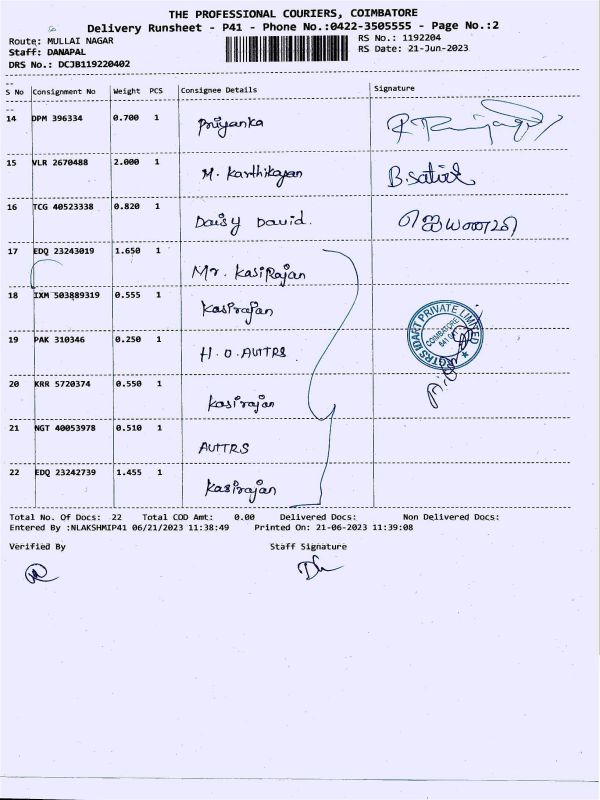 THE PROFESSIONAL COURIERS, COIMBATORE
Delivery Runsheet - P41 - Phone No.:0422-3505555 - Page No.:2
Route: MULLAI NAGAR RS No.: 1192204
Staff: DANAPAL RS Date: 21-Jun-2023
DRS No.: DCJB119220402
S No Consignment No Weight PCS Consignee Details Signature
14 DPM 396334 0.700 1 Priyanka
15 VLR 2670488 2.000 1 M. Karthikayan B.
16 TCG 40523338 0.820 1 Daisy David.
17 EDQ 23243019 1.650 1 Mr. Kasirajan
18 IXM 503889319 0.555 1 Kasirajan
19 PAK 310346 0.250 1 H.O. AUTTRS
20 KRR 5720374 0.550 1 Kasirajan
21 NGT 40053978 0.510 1 AUTTRS
22 EDQ 23242739 1.455 1 Kasirajan
PRIVATE LIMITED
COIMBATORE
Total No. Of Docs: 22 Total COD Amt: 0.00 Delivered Docs: Non Delivered Docs:
Entered By :NLAKSHMIP41 06/21/2023 11:38:49 Printed On: 21-06-2023 11:39:08
Verified By Staff Signature